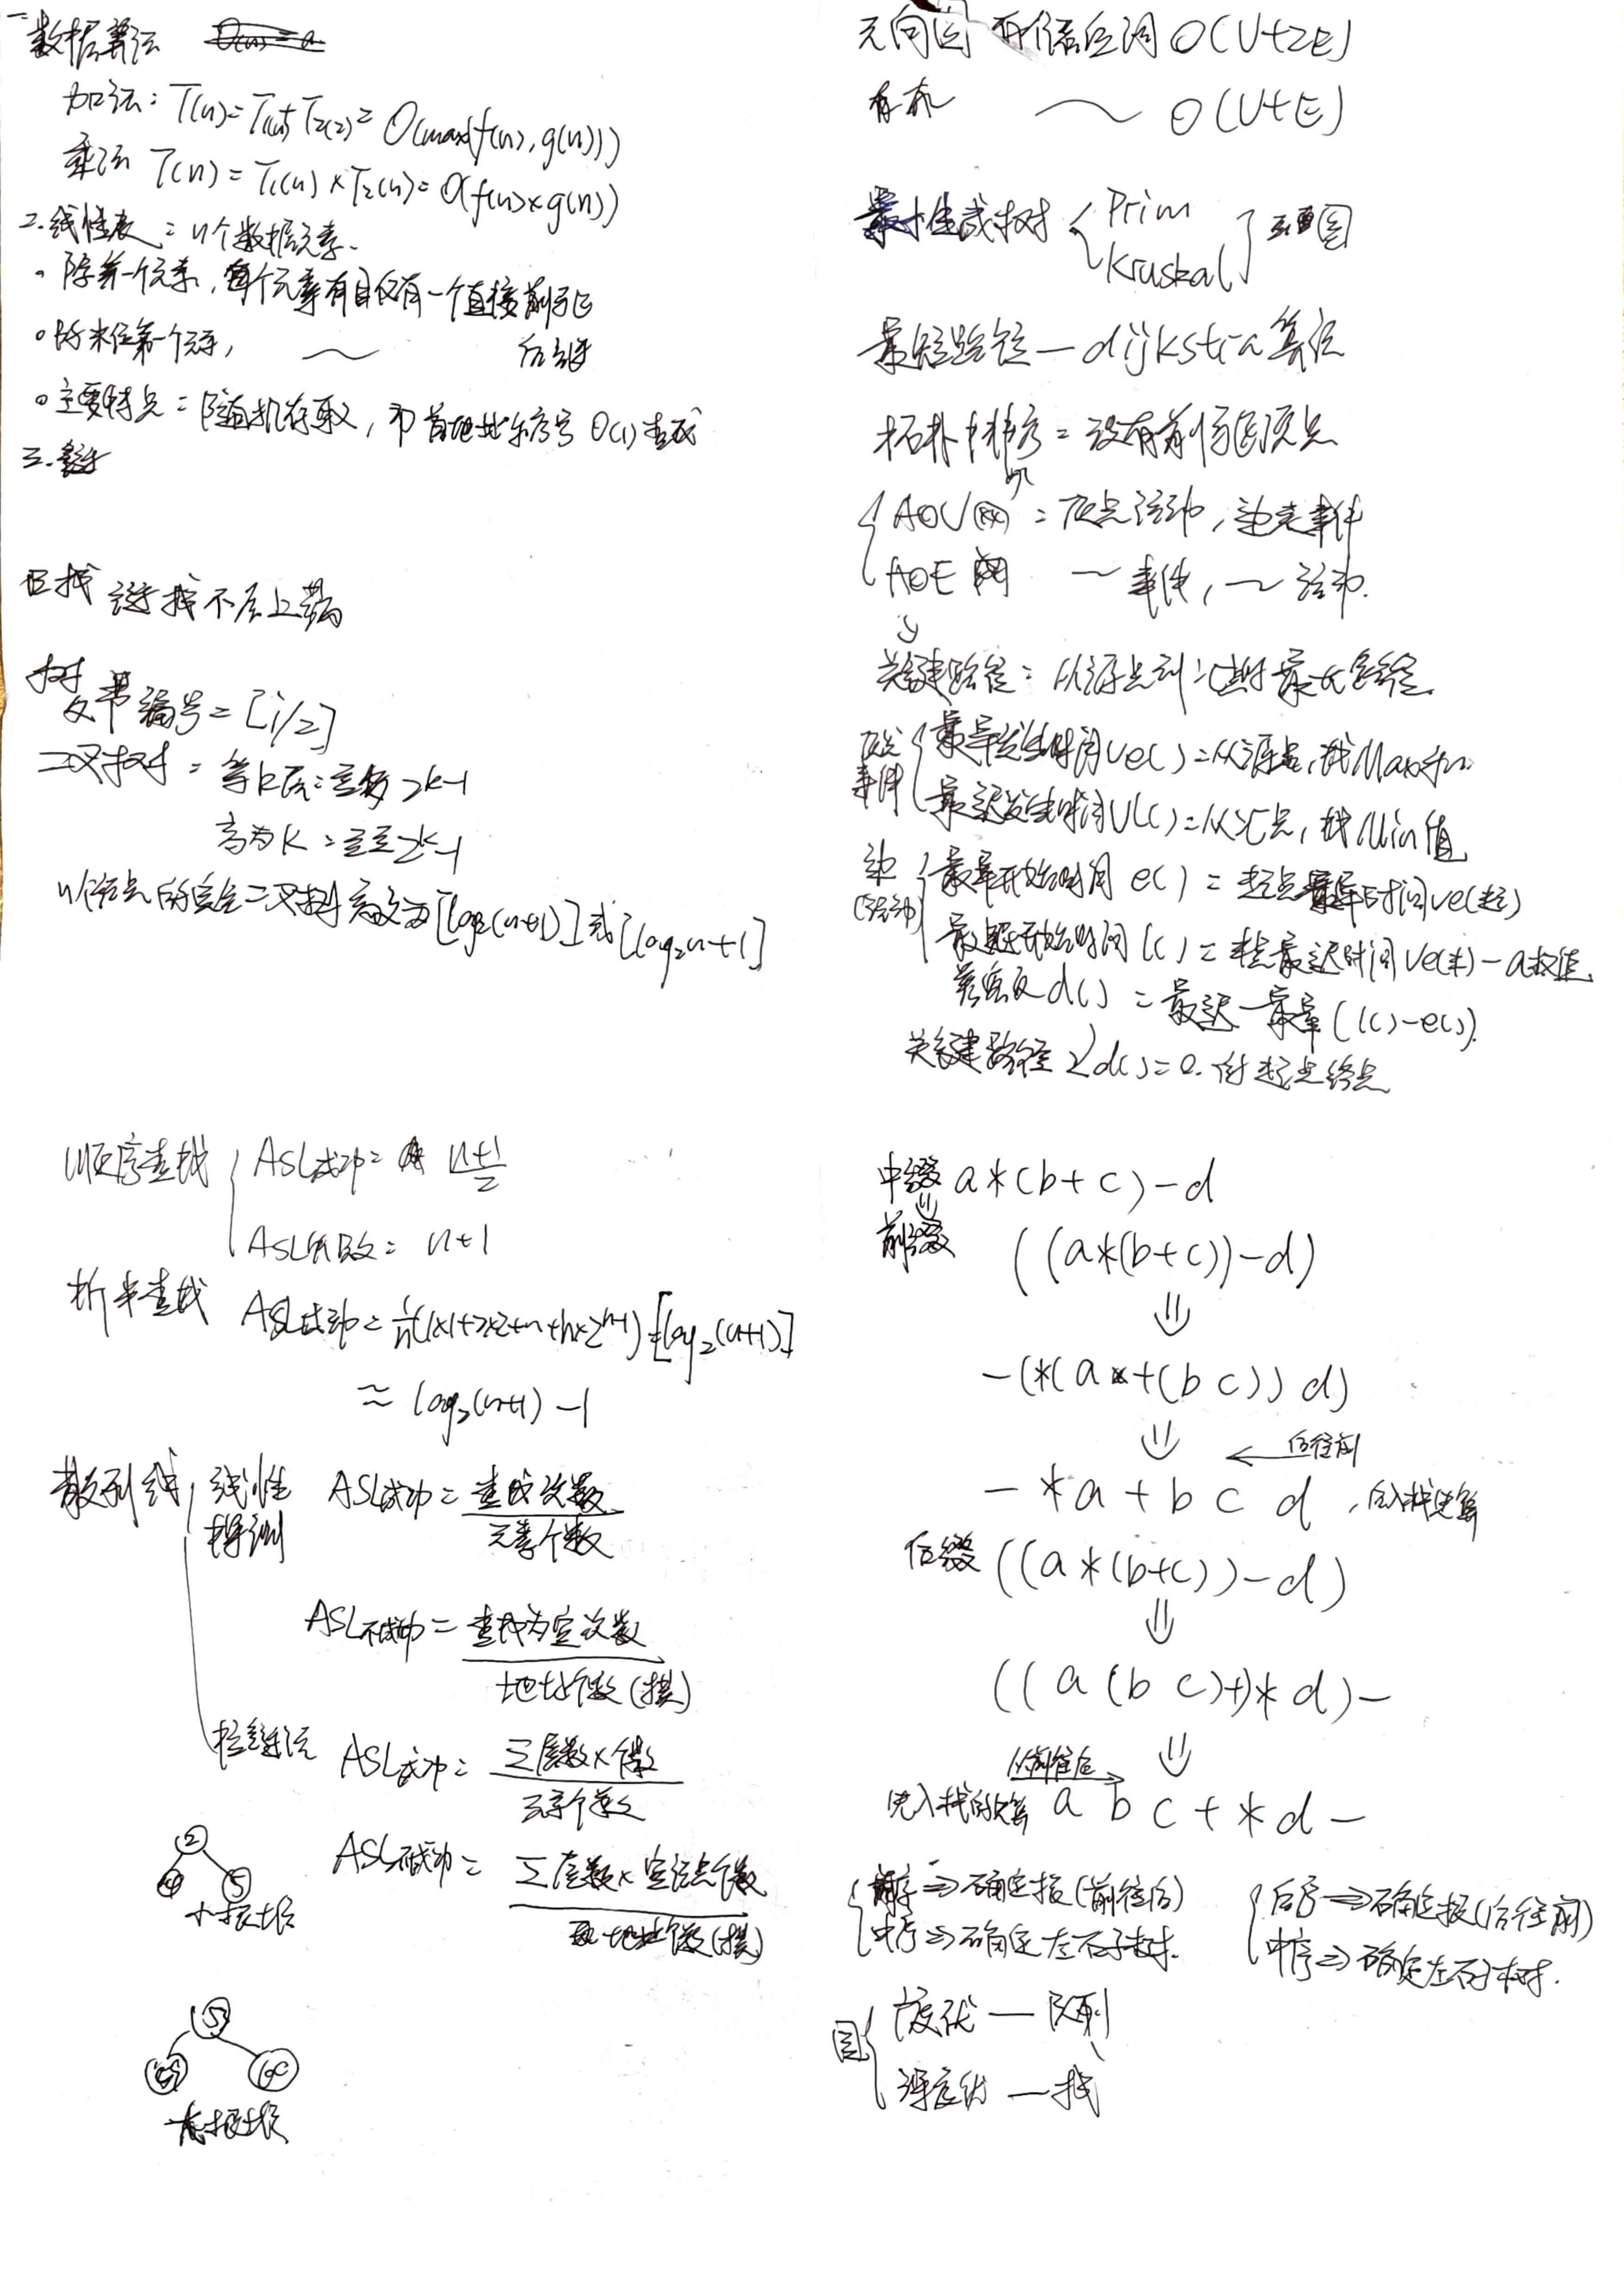 一
数据算法
加法：T(n)=T1(n)+T2(2)=O(max(f(n),g(n)))
乘法 T(n)=T1(n)×T2(n)=O(f(n)×g(n))
2.线性表：n个数据元素.
。除第一个元素，每个元素有且仅有一个直接前驱
。除末位第一个元素，～ 后继
。主要特点：随机存取，即首地址和序号O(1)查找
三.
栈 不后上溢
树
双亲编号=[i/2]
二叉树：第k层：至多2k-1
高为K：至多2k-1
n个结点的完全二叉树高度为[log2(n+1)]或[log2n+1]
顺序查找 ASL成功= n+1/2
ASL失败= n+1
折半查找 ASL成功=1/n(1×1+2×2+…+h×2h-1) [log2(n+1)]
≈ log2(n+1)-1
散列线 线性探测 ASL成功=查找次数/元素个数
ASL不成功=查找为空次数/地址个数(模)
拉链法 ASL成功=Σ层数×个数/元素个数
ASL不成功=Σ层数×空结点个数/地址个数(模)
2
4 5
小根堆
5
大根堆
无向图 O(V+2E)
有向 ～ O(V+E)
最小生成树 Prim
Kruskal 图
最短路径—dijkstra算法
拓扑排序=没有前驱的顶点
AOV网：顶点活动，边表事件
AOE网 ～事件，～活动.
关键路径：从源点到汇点时最长路径
顶点事件 最早发生时间ve()=从源点，找Max
最迟发生时间vl()=从汇点，找Min值
边(活动) 最早开始时间e()=起点最早时间ve(起)
最迟开始时间l()=终点最迟时间ve(末)-a权值
差额d()=最迟-最早(l()-e()).
关键路径 d()=0. 起点终点
中缀 a*(b+c)-d
⇓
前缀 ((a*(b+c))-d)
⇓
-(*(a+(b c)) d)
⇓ ← 后往前
- * a + b c d ，后入栈先算
后缀 ((a*(b+c))-d)
⇓
((a(b c)+)* d)-
从前往后 → ⇓
先入栈的先算 a b c + * d -
前序⇒确定根(前往后)
中序⇒确定左右子树.
后序⇒确定根(后往前)
中序⇒确定左右子树.
图 广度优—队列
深度优—栈